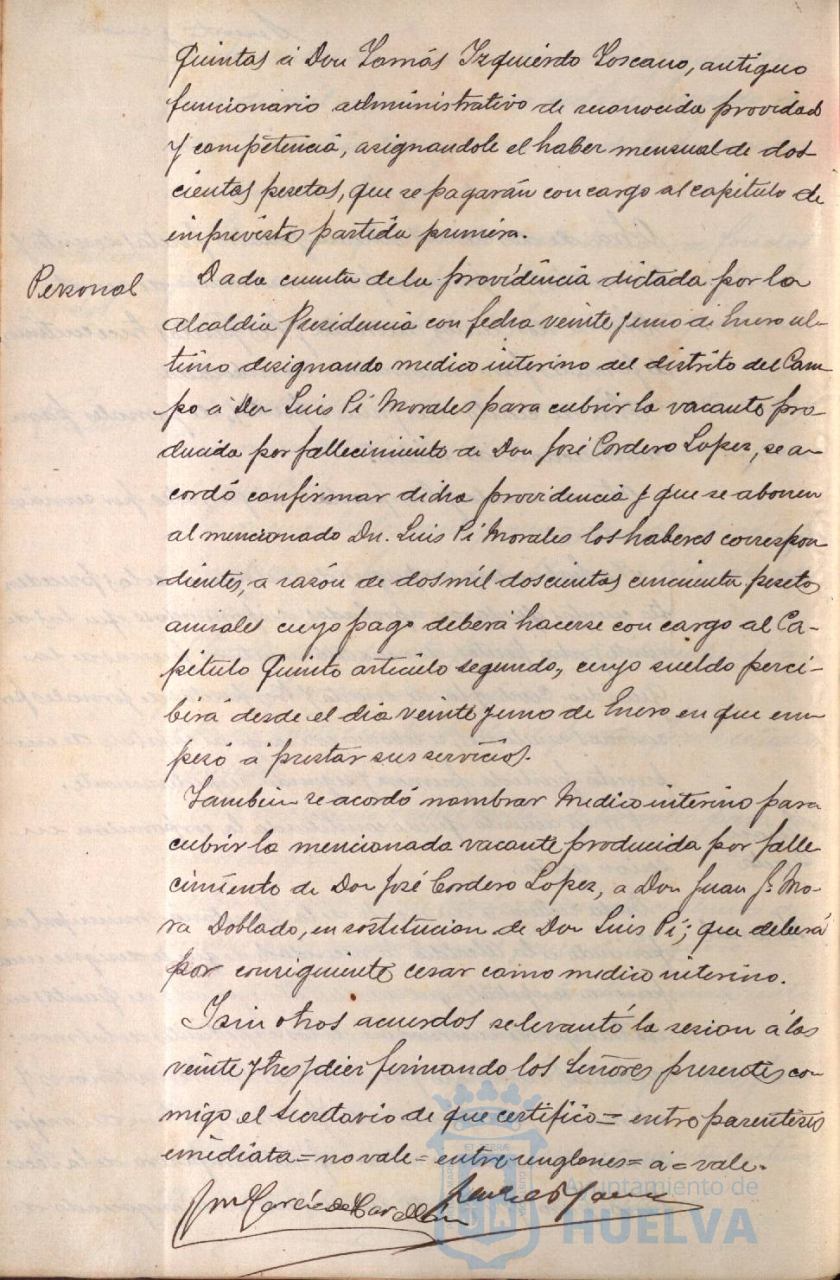 Quintas á Don Tomás Izquierdo Toscano, antiguo
funcionario administrativo de reconocida providad
y competencia, asignandole el haber mensual de dos-
cientas pesetas, que se pagarán con cargo al capitulo de
imprevistos partida primera.
Personal
Dada cuenta de la providencia dictada por la
Alcaldia Presidencia con fecha veinte y uno de Enero ul-
timo designando medico interino del distrito del Cam-
po á Don Luis Pí Morales para cubrir la vacante pro-
ducida por fallecimiento de Don José Cordero Lopez, se a-
cordó confirmar dicha providencia y que se abonen
al mencionado Dn. Luis Pí Morales los haberes correspon-
dientes, a razón de dos mil doscientas cincuenta pesetas
anuales cuyo pago deberá hacerse con cargo al Ca-
pitulo Quinto articulo segundo, cuyo sueldo perci-
birá desde el dia veinte y uno de Enero en que em-
pezó á prestar sus servicios.
Tambien se acordó nombrar Medico interino para
cubrir la mencionada vacante producida por falle-
cimiento de Don José Cordero Lopez, a Don Juan J. Mo-
ra Doblado, en sostitucion de Don Luis Pí; que deberá
por consiguiente cesar como medico interino.
Y sin otros acuerdos se levantó la sesion á las
veinte y tres y diez firmando los Señores presentes con-
migo el Secretario de que certifico = entre parentesis
inmediata = no vale = entre renglones = á = vale.
Ayuntamiento de
HUELVA